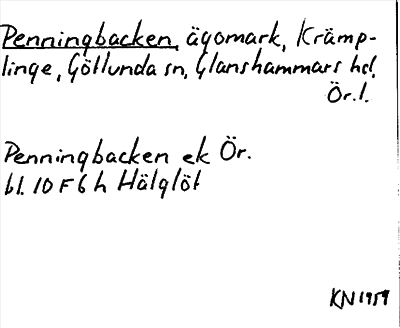 Penningbacken, ägomark, Krämp-
linge, Götlunda sn, Glanshammars hd,
Ör. l.
Penningbacken ek Ör.
bl. 10 F 6 h Hälglöt
KN 1959